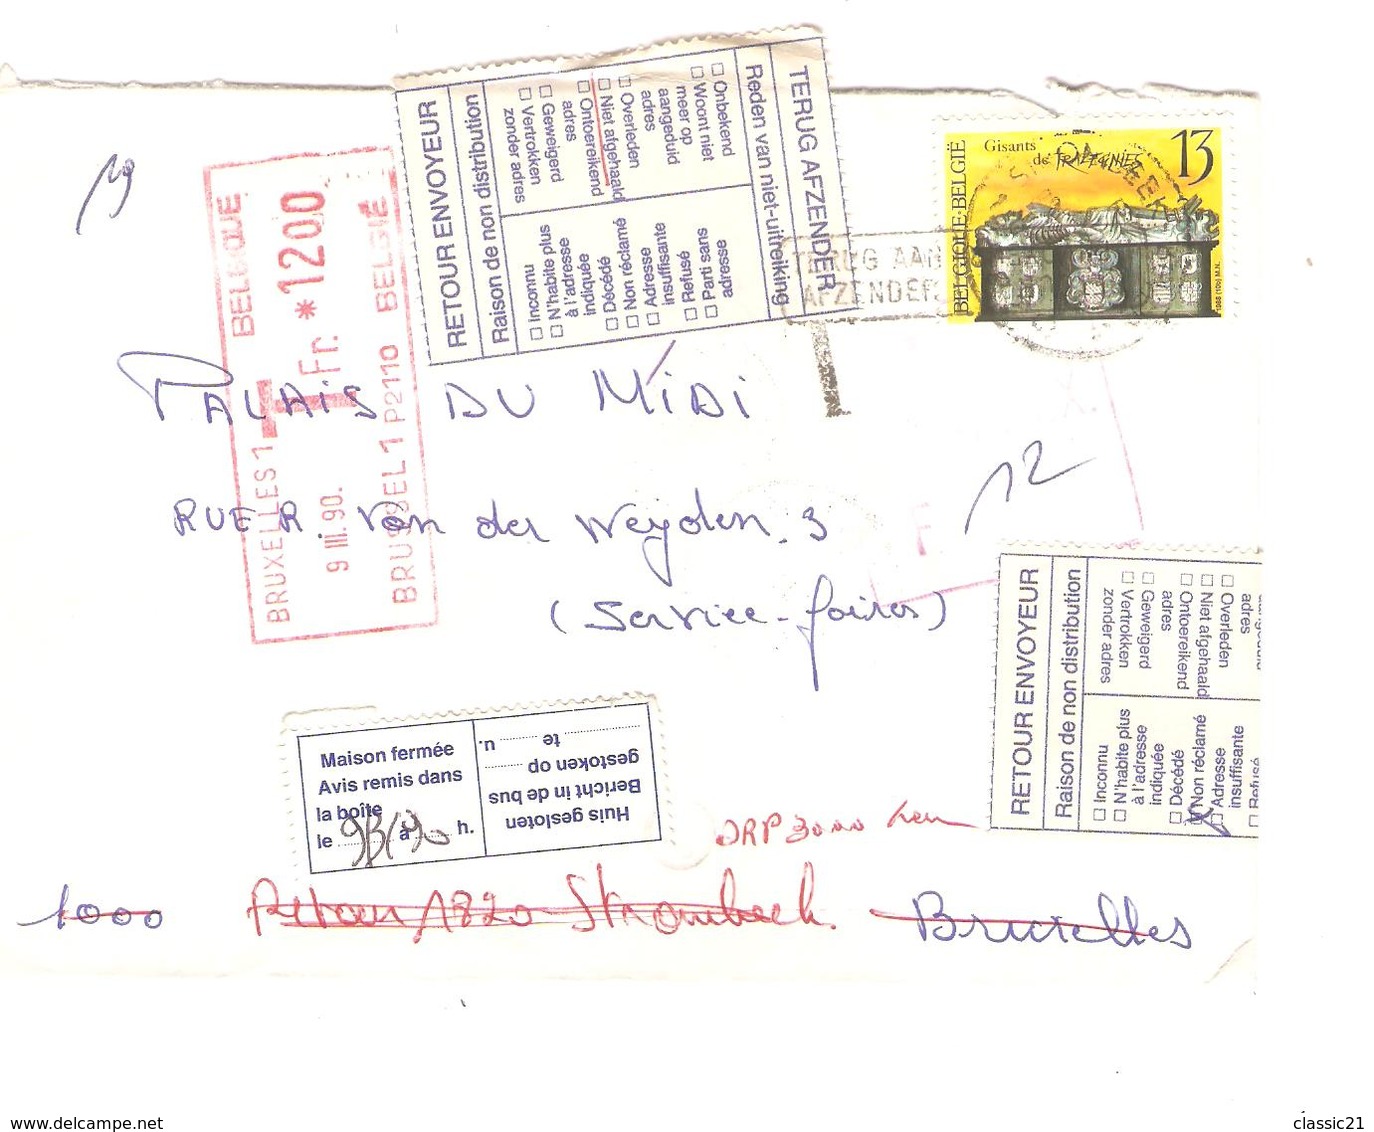 19
BELGIQUE BELGIË
Fr. *1200
9 III. 90. P2110
BRUXELLES 1 BRUSSEL 1
RETOUR ENVOYEUR
Raison de non distribution
☐ Inconnu
☐ N'habite plus
à l'adresse
indiquée
☐ Décédé
☐ Non réclamé
☐ Adresse
insuffisante
☐ Refusé
☐ Parti sans
adresse
TERUG AFZENDER
Reden van niet-uitreiking
☐ Onbekend
☐ Woont niet
meer op
aangeduid
adres
☐ Overleden
☐ Niet afgehaald
☐ Ontoereikend
adres
☐ Geweigerd
☐ Vertrokken
zonder adres
TERUG AAN
AFZENDER
BELGIQUE·BELGIE
Gisants
de TRAZEGNIES
13
1988 (10b) M.N.
PALAIS DU MIDI
RUE R Van der Weyden. 3
12
(Service-foires)
RETOUR ENVOYEUR
Raison de non distribution
☐ Inconnu
☐ N'habite plus
à l'adresse
indiquée
☐ Décédé
☐ Non réclamé
☐ Adresse
insuffisante
☐ Refusé
☐ Overleden
adres
☐ Niet afgehaald
☐ Ontoereikend
adres
☐ Geweigerd
☐ Vertrokken
zonder adres
Maison fermée
Avis remis dans
la boîte
le à h.
Huis gesloten
Bericht in de bus
gestoken op
te u.
1000 Retour 1820 Strombeek. Bruxelles
www.delcampe.net
classic21